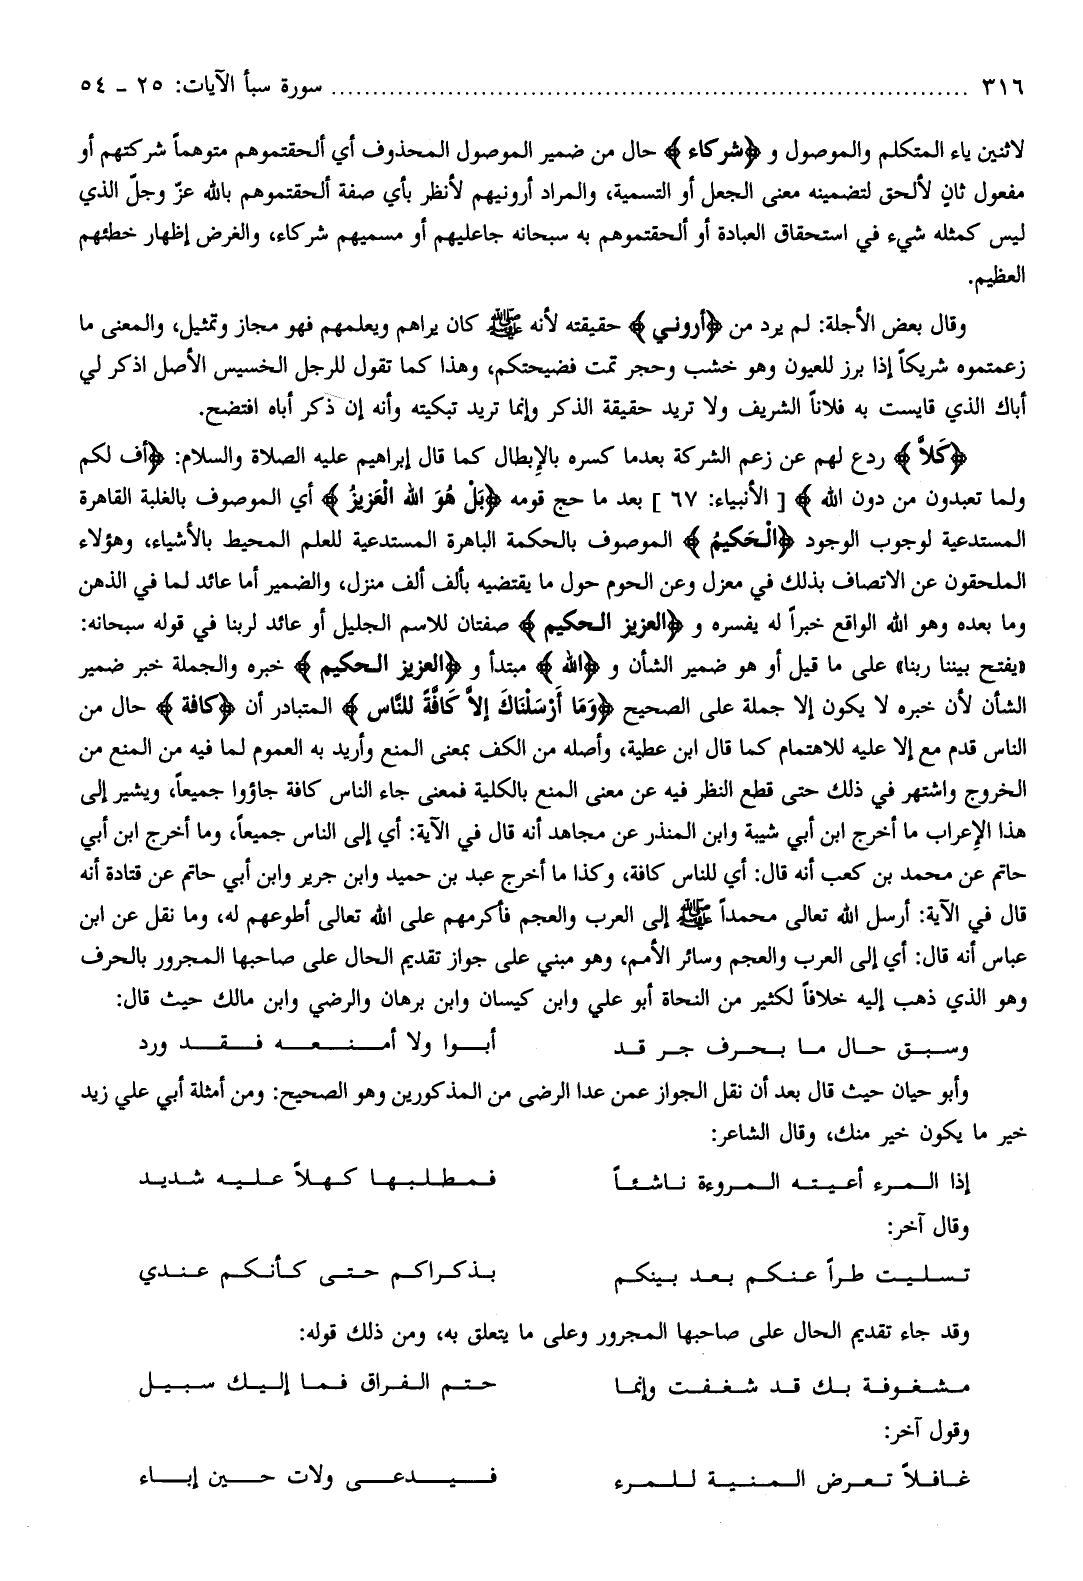 ٣١٦ ........................................ سورة سبأ الآيات: ٢٥ - ٥٤
لاثنين ياء المتكلم والموصول و ﴿شركاء﴾ حال من ضمير الموصول المحذوف أي ألحقتموهم متوهماً شركتهم أو
مفعول ثانٍ لألحق لتضمينه معنى الجعل أو التسمية، والمراد أرونيهم لأنظر بأي صفة ألحقتموهم بالله عزّ وجلّ الذي
ليس كمثله شيء في استحقاق العبادة أو ألحقتموهم به سبحانه جاعليهم أو مسميهم شركاء، والغرض إظهار خطئهم
العظيم.
وقال بعض الأجلة: لم يرد من ﴿أروني﴾ حقيقته لأنه ﷺ كان يراهم ويعلمهم فهو مجاز وتمثيل، والمعنى ما
زعمتموه شريكاً إذا برز للعيون وهو خشب وحجر تمت فضيحتكم، وهذا كما تقول للرجل الخسيس الأصل اذكر لي
أباك الذي قايست به فلاناً الشريف ولا تريد حقيقة الذكر وإنما تريد تبكيته وأنه إن ذكر أباه افتضح.
﴿كَلاَّ﴾ ردع لهم عن زعم الشركة بعدما كسره بالإبطال كما قال إبراهيم عليه الصلاة والسلام: ﴿أف لكم
ولما تعبدون من دون الله﴾ [ الأنبياء: ٦٧ ] بعد ما حج قومه ﴿بَلْ هُوَ الله الْعَزِيزُ﴾ أي الموصوف بالغلبة القاهرة
المستدعية لوجوب الوجود ﴿الْحَكِيمُ﴾ الموصوف بالحكمة الباهرة المستدعية للعلم المحيط بالأشياء، وهؤلاء
الملحقون عن الاتصاف بذلك في معزل وعن الحوم حول ما يقتضيه بألف ألف منزل، والضمير أما عائد لما في الذهن
وما بعده وهو الله الواقع خبراً له يفسره و ﴿العزيز الحكيم﴾ صفتان للاسم الجليل أو عائد لربنا في قوله سبحانه:
«يفتح بيننا ربنا» على ما قيل أو هو ضمير الشأن و ﴿الله﴾ مبتدأ و ﴿العزيز الحكيم﴾ خبره والجملة خبر ضمير
الشأن لأن خبره لا يكون إلا جملة على الصحيح ﴿وَمَا أَرْسَلْنَاكَ إلاَّ كَافَّةً للنَّاس﴾ المتبادر أن ﴿كافة﴾ حال من
الناس قدم مع إلا عليه للاهتمام كما قال ابن عطية، وأصله من الكف بمعنى المنع وأريد به العموم لما فيه من المنع من
الخروج واشتهر في ذلك حتى قطع النظر فيه عن معنى المنع بالكلية فمعنى جاء الناس كافة جاؤوا جميعاً، ويشير إلى
هذا الإعراب ما أخرج ابن أبي شيبة وابن المنذر عن مجاهد أنه قال في الآية: أي إلى الناس جميعاً، وما أخرج ابن أبي
حاتم عن محمد بن كعب أنه قال: أي للناس كافة، وكذا ما أخرج عبد بن حميد وابن جرير وابن أبي حاتم عن قتادة أنه
قال في الآية: أرسل الله تعالى محمداً ﷺ إلى العرب والعجم فأكرمهم على الله تعالى أطوعهم له، وما نقل عن ابن
عباس أنه قال: أي إلى العرب والعجم وسائر الأمم، وهو مبني على جواز تقديم الحال على صاحبها المجرور بالحرف
وهو الذي ذهب إليه خلافاً لكثير من النحاة أبو علي وابن كيسان وابن برهان والرضي وابن مالك حيث قال:
وسبق حال ما بحرف جر قد    أبوا ولا أمنعه فقد ورد
وأبو حيان حيث قال بعد أن نقل الجواز عمن عدا الرضى من المذكورين وهو الصحيح: ومن أمثلة أبي علي زيد
خير ما يكون خير منك، وقال الشاعر:
إذا المرء أعيته المروءة ناشئاً    فمطلبها كهلاً عليه شديد
وقال آخر:
تسليت طراً عنكم بعد بينكم    بذكراكم حتى كأنكم عندي
وقد جاء تقديم الحال على صاحبها المجرور وعلى ما يتعلق به، ومن ذلك قوله:
مشغوفة بك قد شغفت وإنما    حتم الفراق فما إليك سبيل
وقول آخر:
غافلاً تعرض المنية للمرء    فيدعى ولات حين إباء